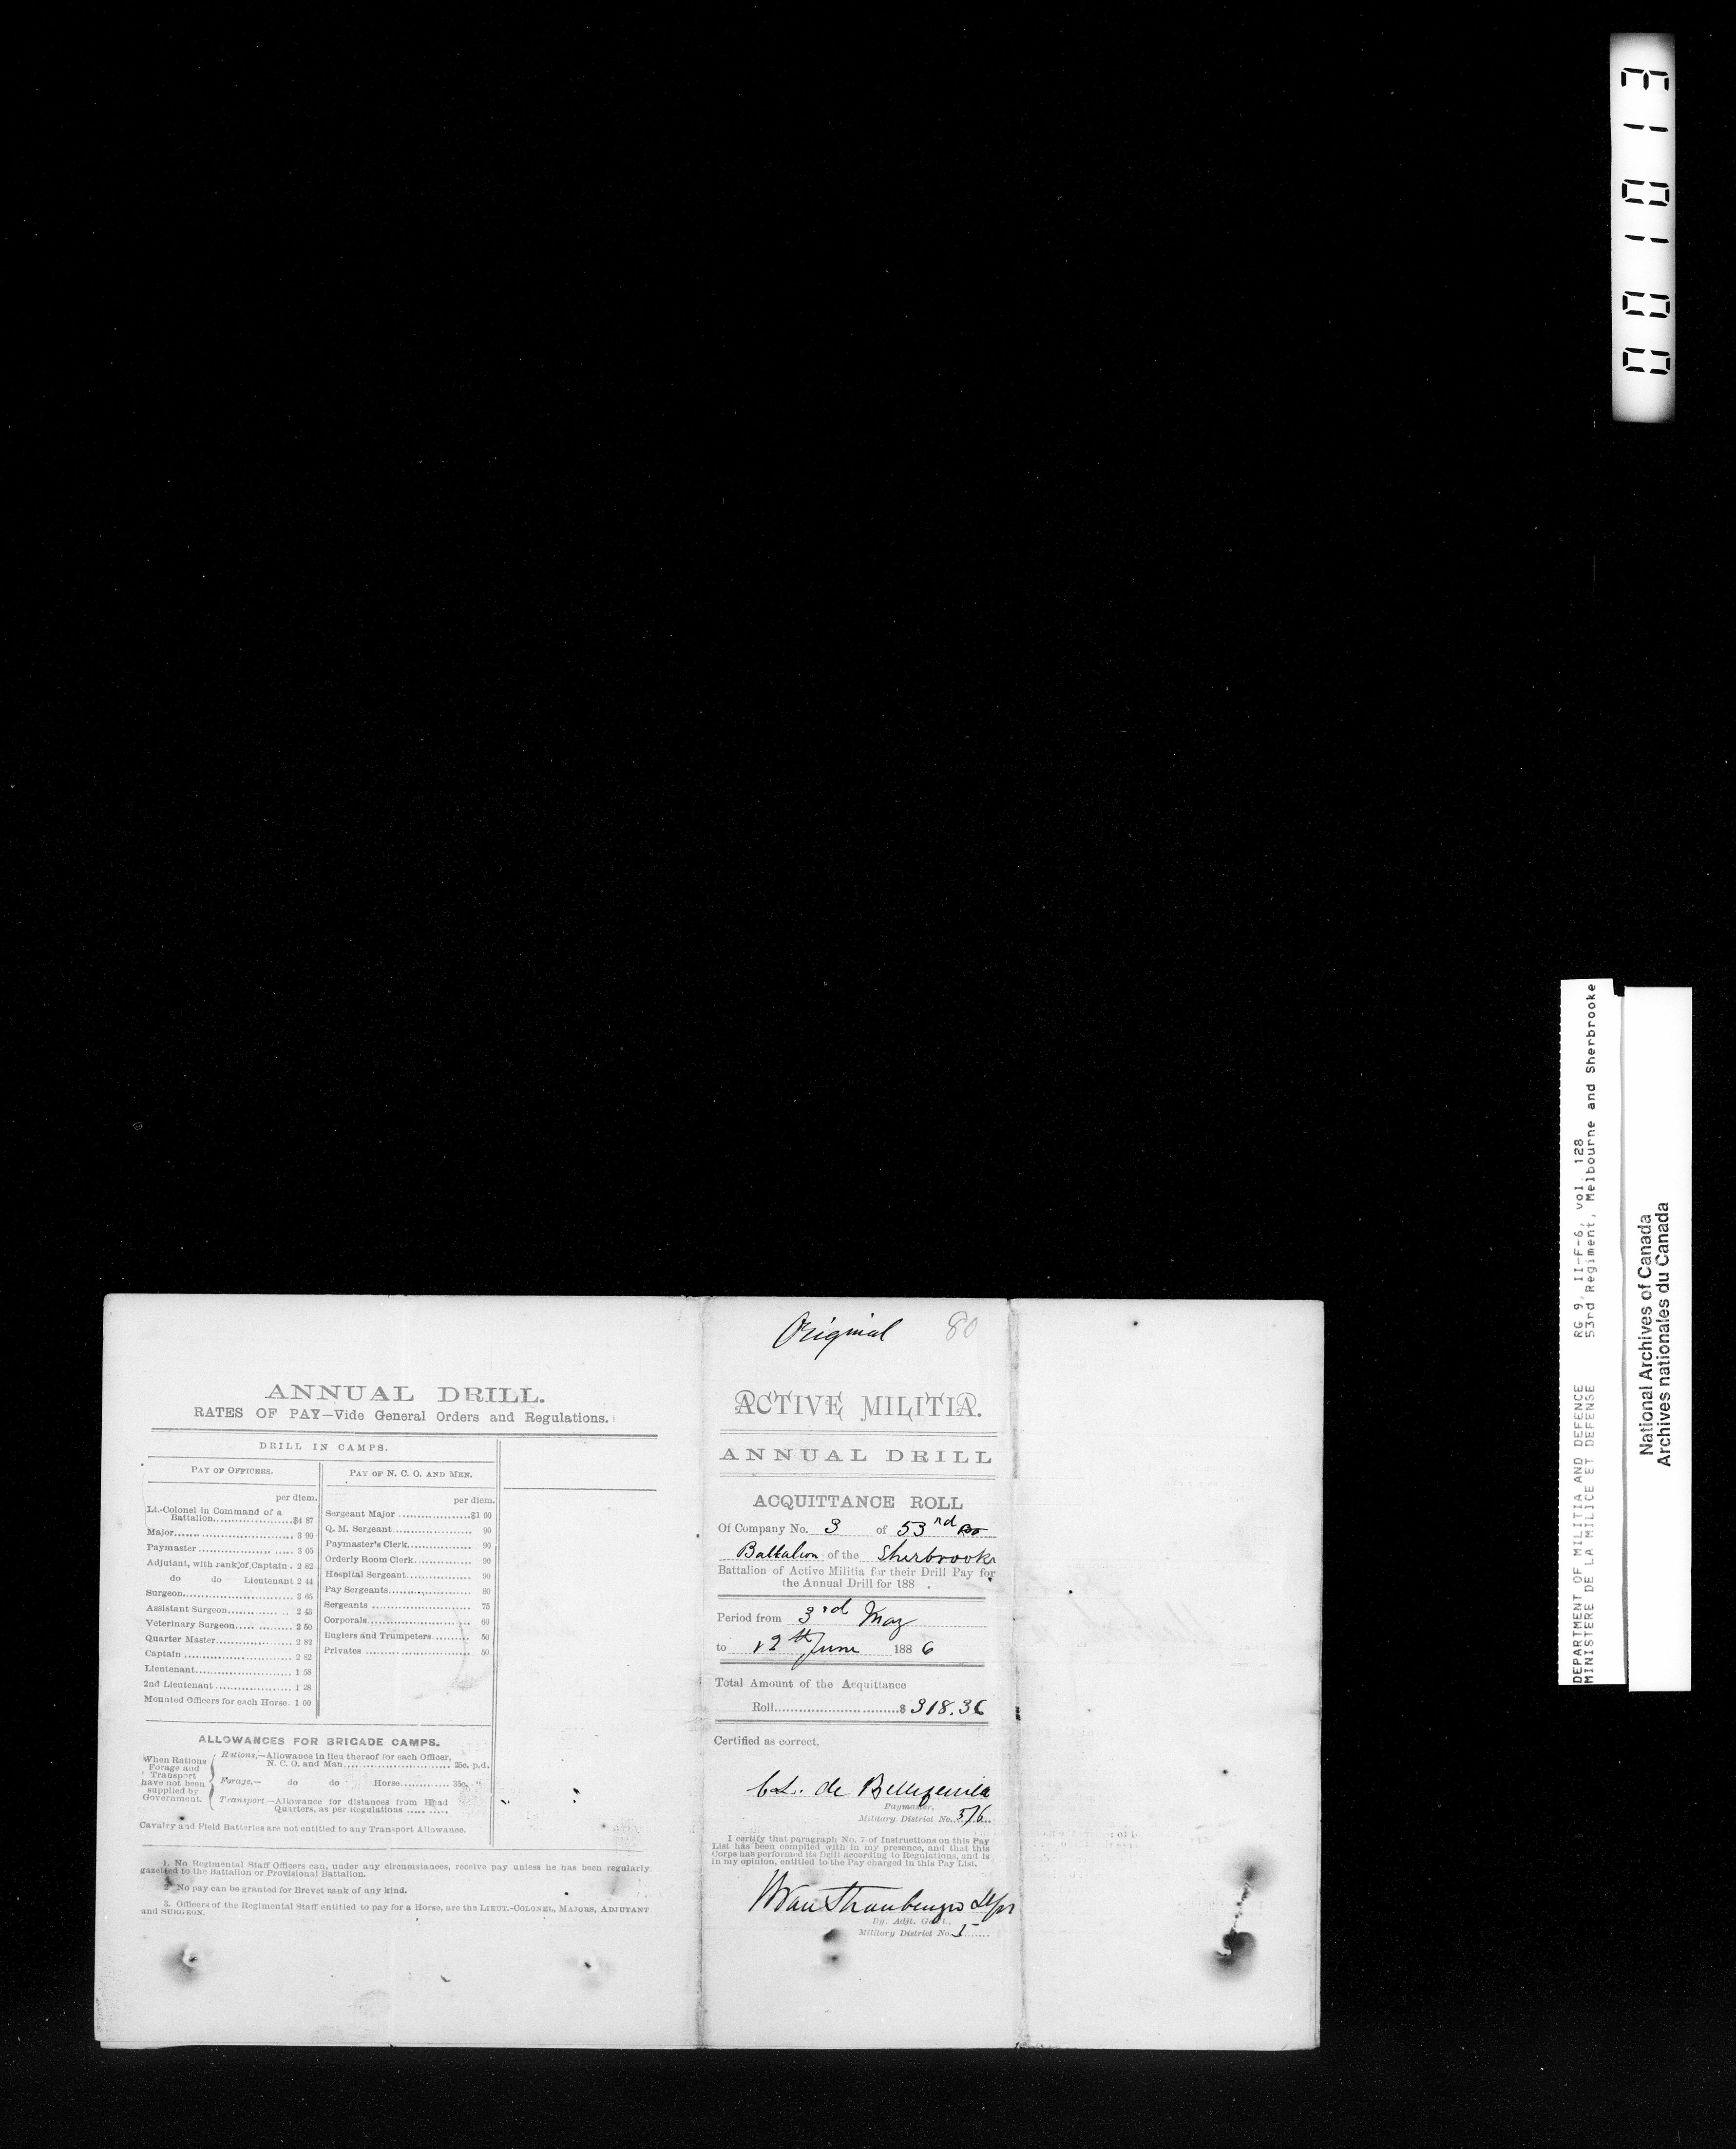 ANNUAL DRILL.
RATES OF PAY—Vide General Orders and Regulations.
DRILL IN CAMPS.
PAY OF OFFICERS.
per diem.
Lt.-Colonel in Command of a
Battalion....................$4 87
Major.............................. 3 90
Paymaster ........................ 3 05
Adjutant, with rank of Captain . 2 82
do do Lieutenant 2 44
Surgeon............................ 3 65
Assistant Surgeon............ .. 2 43
Veterinary Surgeon..... ......... 2 50
Quarter Master................... 2 82
Captain ........................... 2 82
Lieutenant......................... 1 58
2nd Lieutenant .................... 1 28
Mounted Officers for each Horse. 1 00
PAY OF N. C. O. AND MEN.
per diem.
Sergeant Major ..................$1 00
Q. M. Sergeant ................... 90
Paymaster's Clerk................ 90
Orderly Room Clerk.............. 90
Hospital Sergeant................ 90
Pay Sergeants.................... 80
Sergeants ........................ 75
Corporals......................... 60
Buglers and Trumpeters.......... 50
Privates .......................... 50
ALLOWANCES FOR BRIGADE CAMPS.
When Rations
Forage and
Transport
have not been
supplied by
Government.
Rations,—Allowance in lieu thereof for each Officer,
N. C. O. and Man.......................... 25c. p.d.
Forage.— do do Horse............ 35c. "
Transport.—Allowance for distances from Head
Quarters, as per Regulations ..... .....
Cavalry and Field Batteries are not entitled to any Transport Allowance.
1. No Regimental Staff Officers can, under any circumstances, receive pay unless he has been regularly
gazetted to the Battalion or Provisional Battalion.
2. No pay can be granted for Brevet rank of any kind.
3. Officers of the Regimental Staff entitled to pay for a Horse, are the LIEUT.-COLONEL, MAJORS, ADJUTANT
and SURGEON.
Original 80
ACTIVE MILITIA.
ANNUAL DRILL
ACQUITTANCE ROLL
Of Company No. 3 of 53rd
Battalion of the Sherbrooke
Battalion of Active Militia for their Drill Pay for
the Annual Drill for 188 .
Period from 3rd May
to 12th June 1886
Total Amount of the Acquittance
Roll..............................$ 318.36
Certified as correct,
de Bellefeuille
Paymaster,
Military District No. 5/6
I certify that paragraph No. 7 of Instructions on this Pay
List has been complied with in my presence, and that this
Corps has performed its Drill according to Regulations, and is
in my opinion, entitled to the Pay charged in this Pay List.
Dy. Adjt. Gen'l.,
Military District No. 5
001013
DEPARTMENT OF MILITIA AND DEFENCE RG 9, II-F-6, vol. 128
MINISTERE DE LA MILICE ET DEFENSE 53rd Regiment, Melbourne and Sherbrooke
National Archives of Canada
Archives nationales du Canada